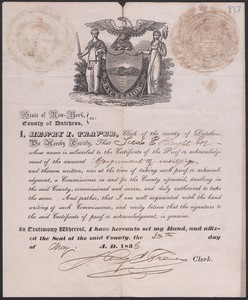 State of New-York,
County of Dutchess, } ss.
I, HENRY I. TRAVER, Clerk of the county of Dutchess,
Do Hereby Certify, That
whose name is subscribed to the Certificate of the Proof or acknowledgment
of the annexed
and therein written, was at the time of taking such proof or acknowledgment,
a Commissioner in and for the County aforesaid, dwelling in
the said County, commissioned and sworn, and duly authorized to take
the same. And further, that I am well acquainted with the hand
writing of such Commissioner, and verily believe that the signature to
the said Certificate of proof or acknowledgment, is genuine.
In Testimony Whereof, I have hereunto set my Hand, and affixed
the Seal of the said county, the day
of May A. D. 1836
Clerk.